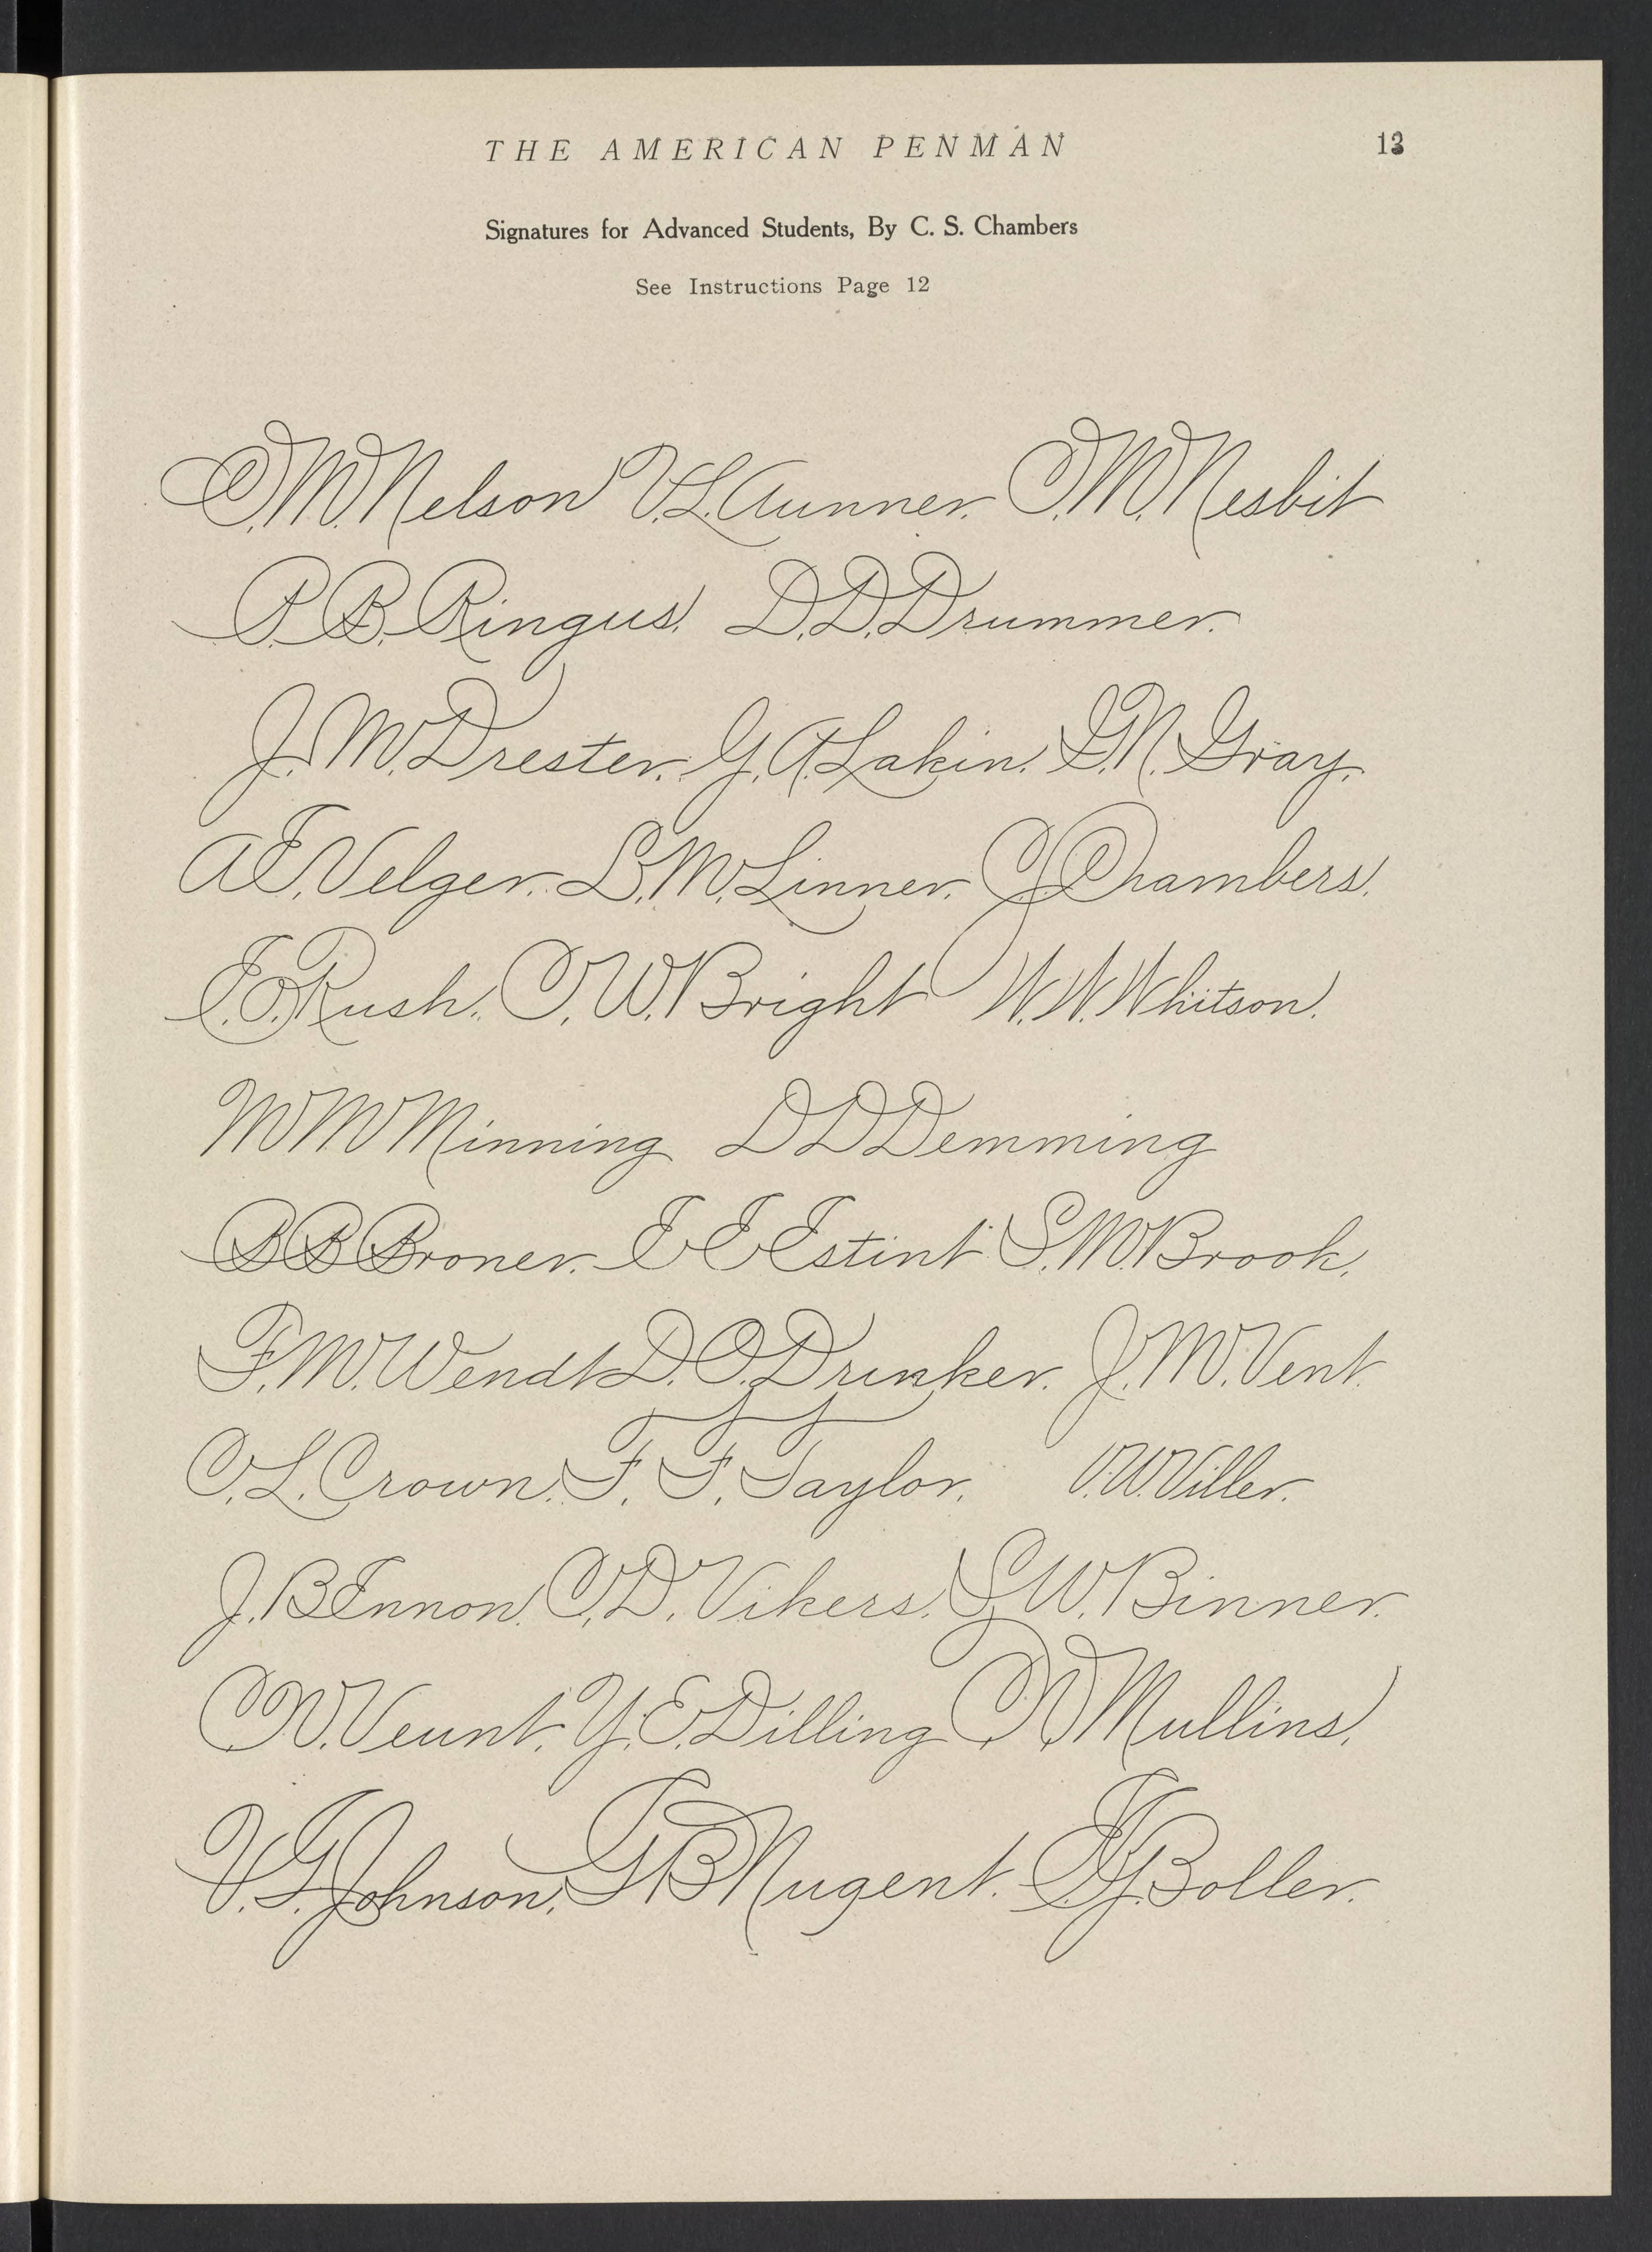 THE AMERICAN PENMAN 13
Signatures for Advanced Students, By C. S. Chambers
See Instructions Page 12
C. M. Nelson V. L. Aunner. C. M. Nesbit
P. B. Ringus. D. D. Drummer.
J. M. Drester. G. A. Lakin. G. N. Gray.
A E. Velger. L. M. Linner. C. J. Chambers.
E. O. Rush. C. W. Bright W. W. Whitson.
M M Minning D D Demming
B B Broner. E E Estint S. M. Brook.
F. M. Wendt D. O. Drinker. J. M. Vent.
C. L. Crown. F. F. Taylor. V. W. Viller.
J. B Ennon. C. D. Vikers. S. W. Binner.
C. W. Veunt. Y. E. Dilling C. W. Mullins.
V. G. Johnson. G B Nugent. Boller.